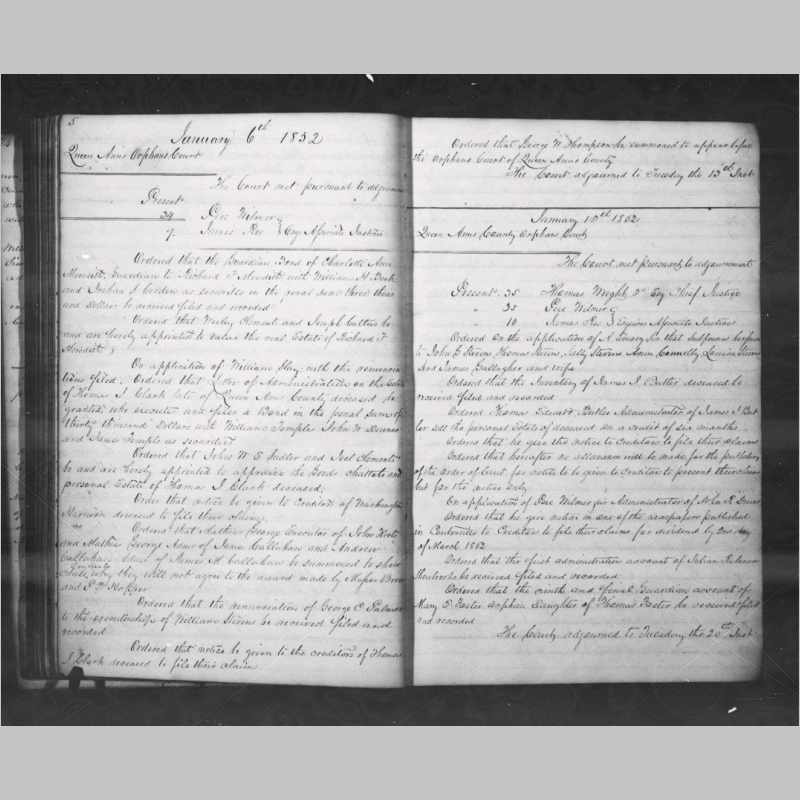 5
January 6th 1852
Queen Anns Orphans Court
The Court met pursuant to adjournm
Present
34 Pere Wilmer &
7. James Roe } Esq Associate Justices
Ordered that the Guardian Bond of Charlotte Ann
Meredith, Guardian to Richard T Meredith with William H.
and Joshua J as securities in the penal sum three thous
and dollars be received filed and recorded
Ordered that Wesley Clement and Joseph be
and are hereby appointed to value the real Estate of Richard T
Meredith
On application of William Clay, with the renuncia
tions filed, Ordered that Letters of Administration on the Estate
of Thomas J. Clark late of Queen Anns County deceased be
granted, who executes and files a Bond in the penal sum of
thirty thousand Dollars with William Temple, John W Downes
and James Temple as securities
Ordered that John W E Sudler and Joel Clements
be and are hereby appointed to appraise the Goods chattels and
personal Estate of Thomas J Clark deceased,
Order that notice be given to Creditors of Washington
deceased to file their claims
Ordered that Mathew George Executor of John
and Mathew George Admr of James Callahan and Andrew
Callahan Admr of James H Callahan be summoned to show
cause why they will not agree to the award made by
and
Ordered that the renunciation of George C Palmer
to the executorship of William be received filed and
recorded
Ordered that notice be given to the creditors of Thomas
J Clark deceased to file their claims
Ordered that George W Thompson be summoned to appear before
the Orphans Court of Queen Anns County
The Court adjourned to Tuesday the 13th Inst
January 13th 1852
Queen Anns County Orphans Court
The Court met pursuant to adjournment
Present 35 Thomas Wright 3d Esq Chief Justice
" 35 Pere Wilmer &
" 10 James Roe } Esquires Associate Justices
Ordered on the application of A that be
to John Stevens Thomas Stevens, Sally Stevens Ann Connelly Louisa Stevens
and James Gallagher and wife
Ordered that the Inventory of James J. Butler deceased be
received filed and recorded
Ordered Thomas Edward Butler Administrator of James J But
ler sell the personal Estate of deceased on a credit of six months
Ordered that he give the notice to Creditors to file their claims
Ordered that hereafter no allowance will be made for the publishing
of the order of Court for notice to be given to Creditors to present their claims
but for the notice only
On application of Pere Wilmer for Administrator of
Ordered that he give notice in one of the newspapers published
in Centreville to Creditors to file their claims for dividend by 2nd day
of March 1852
Ordered that the first administration account of
be received filed and recorded
Ordered that the ninth and final Guardian account of
Mary E Foster orphan daughter of Thomas Foster be received filed
and recorded
The Court adjourned to Tuesday the 20th Inst